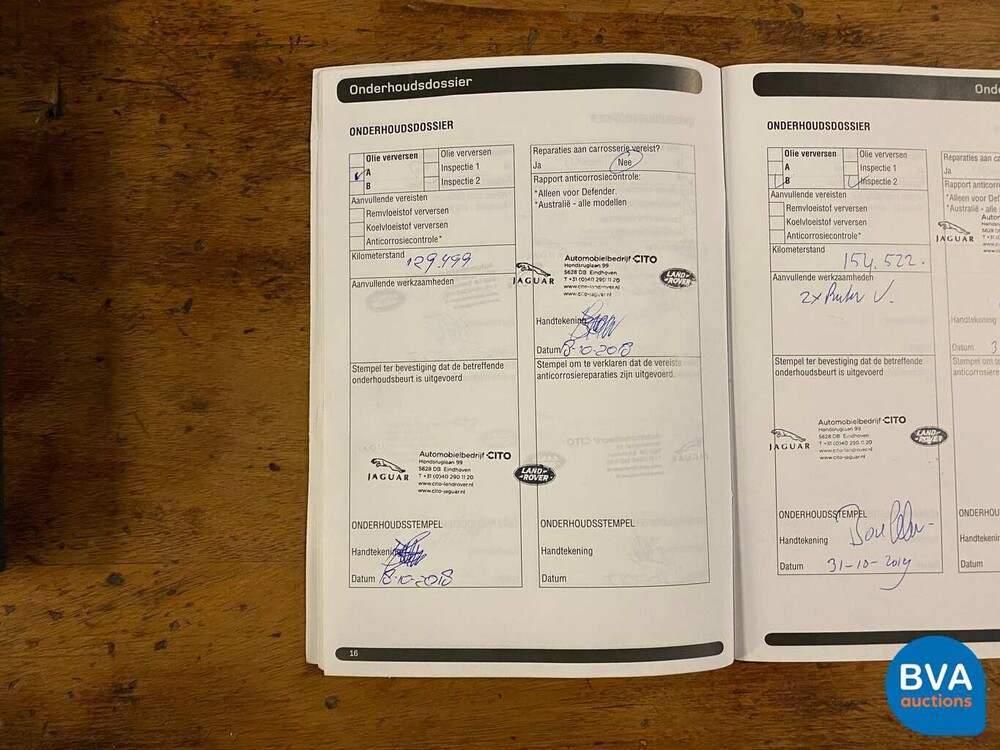 Onderhoudsdossier
ONDERHOUDSDOSSIER
Olie verversen
A
B
Olie verversen
Inspectie 1
Inspectie 2
Aanvullende vereisten
Remvloeistof verversen
Koelvloeistof verversen
Anticorrosiecontrole*
Kilometerstand 129.499
Aanvullende werkzaamheden
Stempel ter bevestiging dat de betreffende
onderhoudsbeurt is uitgevoerd
JAGUAR
Automobielbedrijf CITO
Hondsruglaan 99
5628 DB Eindhoven
T +31 (0)40 290 11 20
www.cito-landrover.nl
www.cito-jaguar.nl
LAND ROVER
ONDERHOUDSSTEMPEL
Handtekening
Datum 18-10-2018
16
Reparaties aan carrosserie vereist?
Ja Nee
Rapport anticorrosiecontrole:
*Alleen voor Defender.
*Australië - alle modellen
JAGUAR
Automobielbedrijf CITO
Hondsruglaan 99
5628 DB Eindhoven
T +31 (0)40 290 11 20
www.cito-landrover.nl
www.cito-jaguar.nl
LAND ROVER
Handtekening
Datum 18-10-2018
Stempel om te verklaren dat de vereiste
anticorrosiereparaties zijn uitgevoerd.
ONDERHOUDSSTEMPEL
Handtekening
Datum
Onde
ONDERHOUDSDOSSIER
Olie verversen
A
B
Olie verversen
Inspectie 1
Inspectie 2
Aanvullende vereisten
Remvloeistof verversen
Koelvloeistof verversen
Anticorrosiecontrole*
Kilometerstand
154.522.
Aanvullende werkzaamheden
2x V.
Stempel ter bevestiging dat de betreffende
onderhoudsbeurt is uitgevoerd
JAGUAR
Automobielbedrijf CITO
Hondsruglaan 99
5628 DB Eindhoven
T +31 (0)40 290 11 20
www.cito-landrover.nl
www.cito-jaguar.nl
LAND ROVER
ONDERHOUDSSTEMPEL
Handtekening
Datum 31-10-2019
Reparaties aan ca
Ja
Rapport anticorr
*Alleen voor Def
*Australië - alle
JAGUAR
Handtekening
Datum 3
Stempel om
anticorrosier
ONDERHOU
Handtekenin
Datum
BVA
auctions